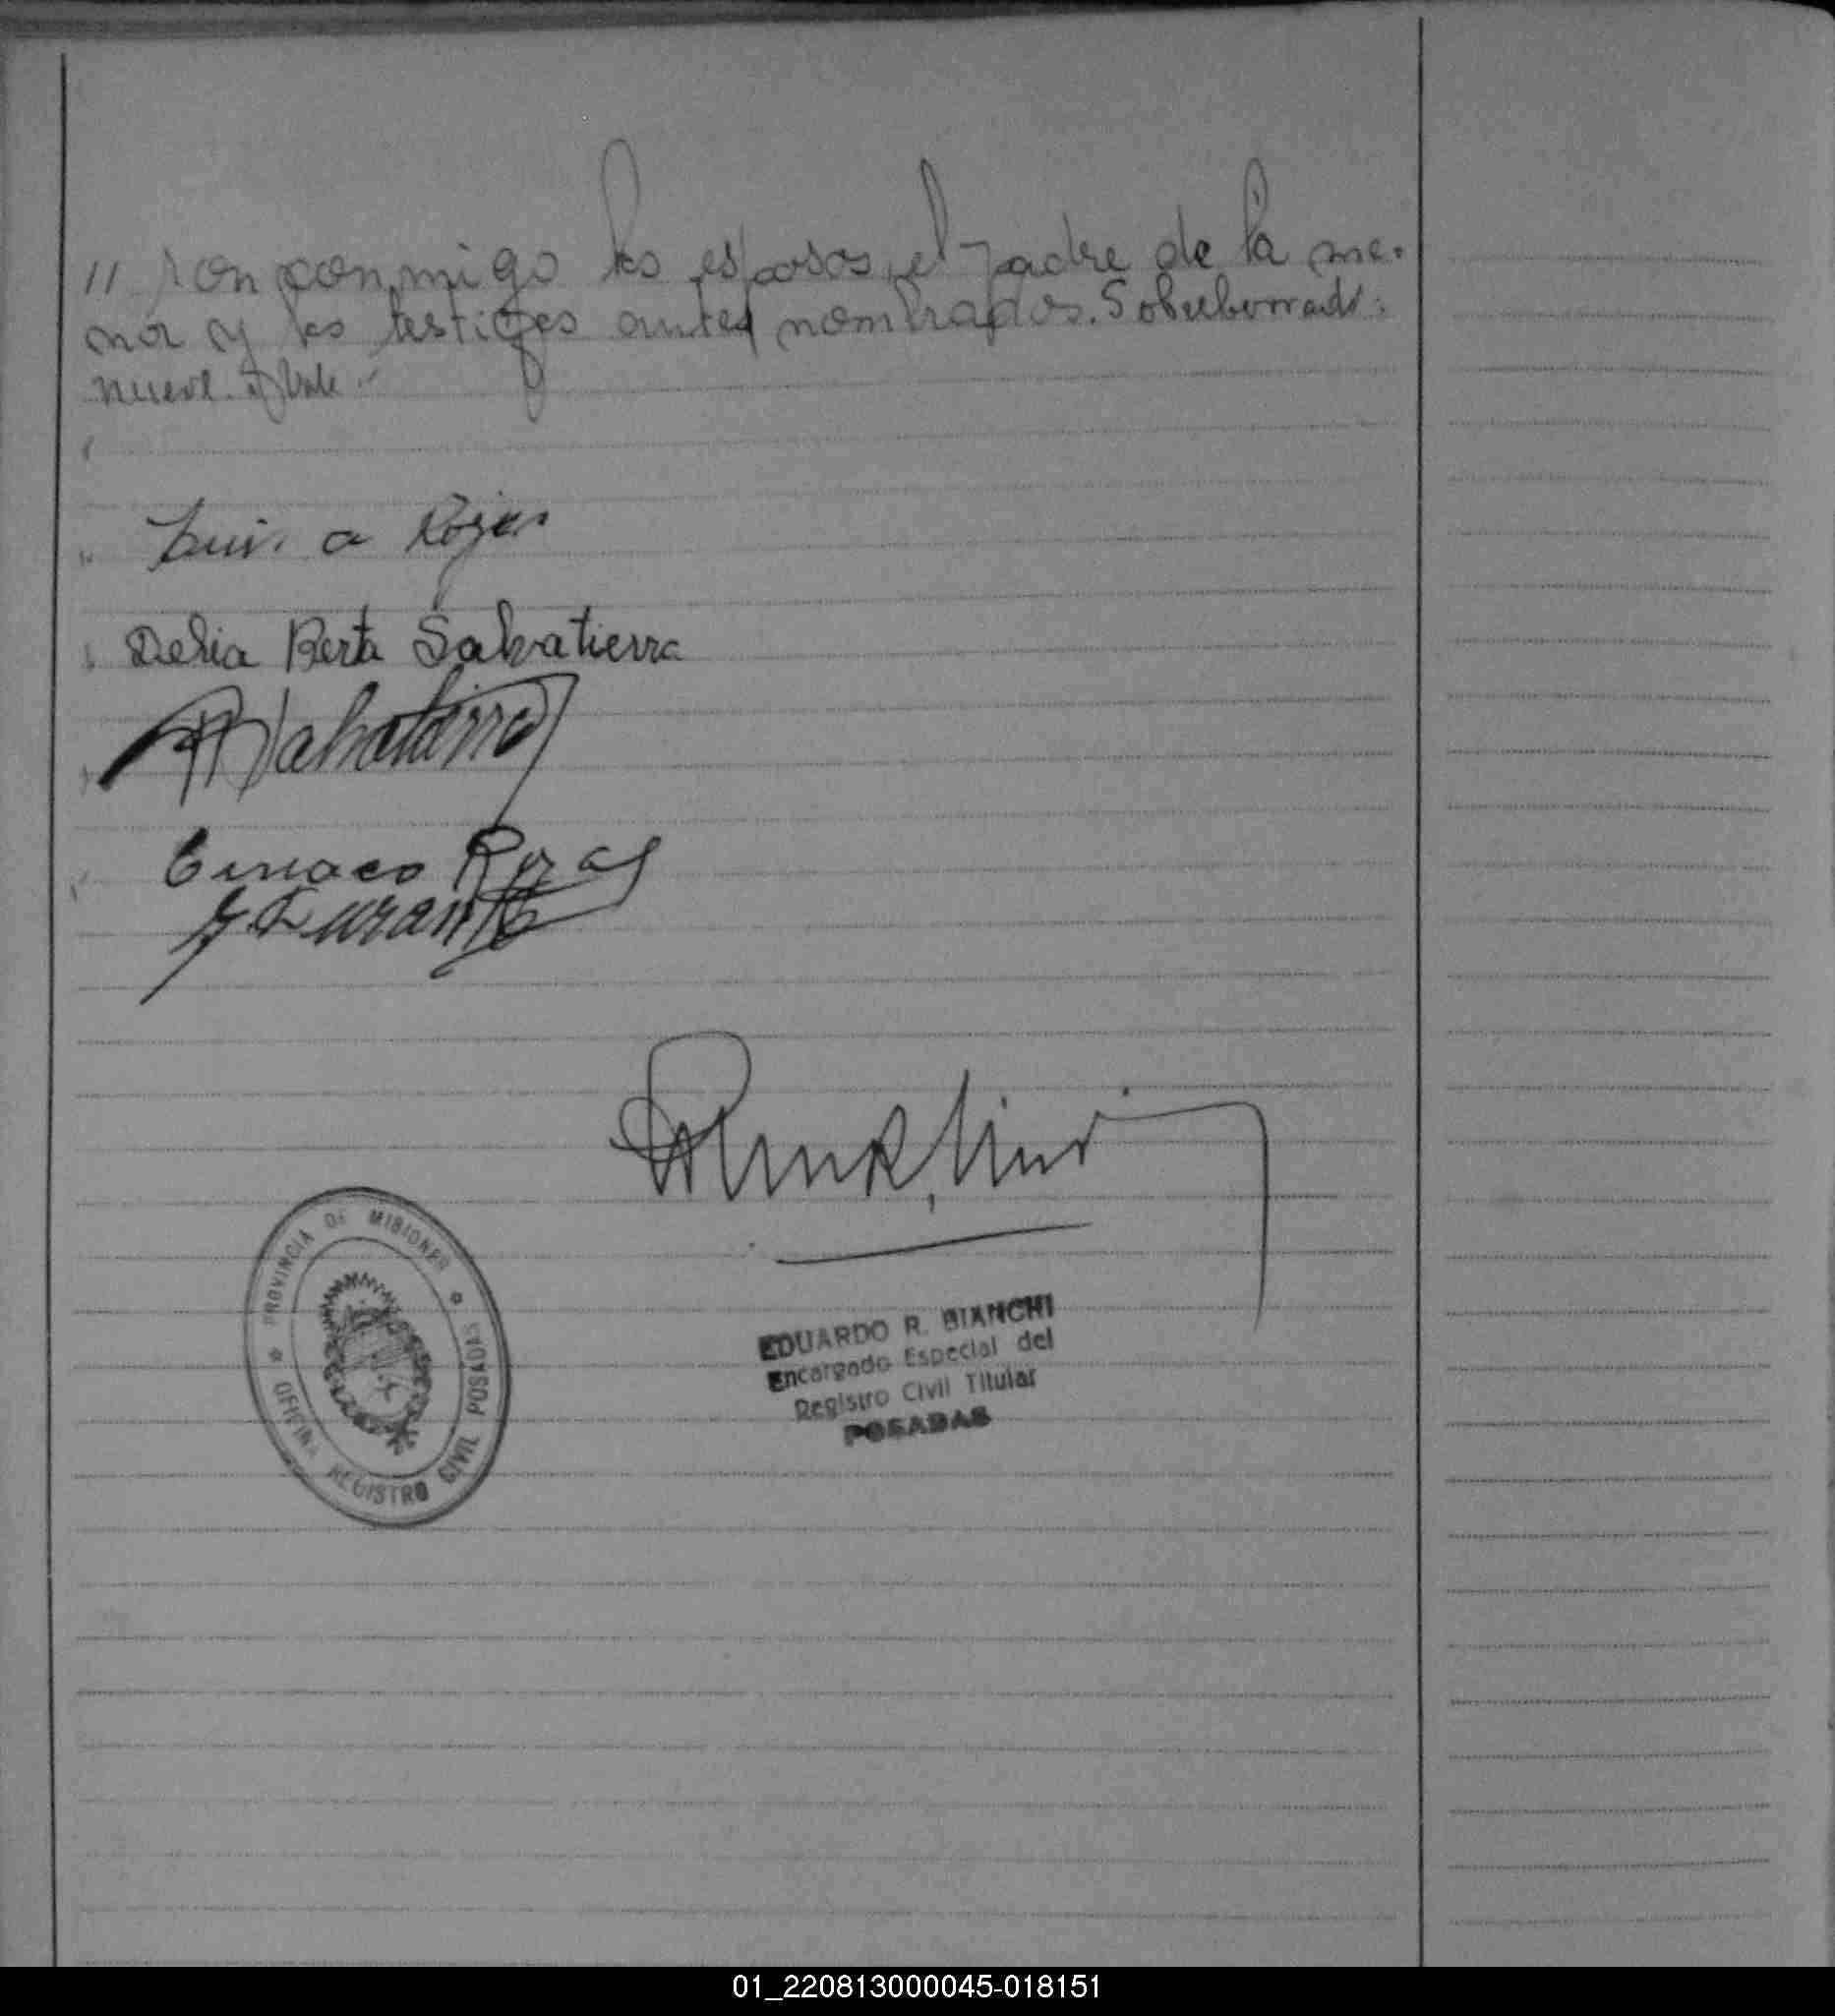 // ron conmigo los esposos, el padre de la me-
nor y los testigos antes nombrados. Sobreborrado:
nueve. Vale.-
Luis a Rojas
Delia Berta Salvatierra
Salvatierra
Ciriaco Rojas
Durante
PROVINCIA DE MISIONES
OFICINA REGISTRO CIVIL POSADAS
EDUARDO R. BIANCHI
Encargado Especial del
Registro Civil Titular
POSADAS
01_220813000045-018151